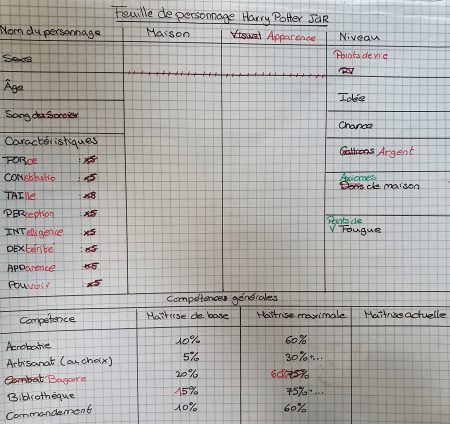 Feuille de personnage Harry Potter JdR
Nom du personnage Maison Visuel Apparence Niveau
Sexe Points de vie
PV
Âge
Idée
Sang du Sorcier
Chance
Caractéristiques
FORce : x5 Gallions Argent
CONstitutio : x5 Axiomes
TAIlle : x8 Dons de maison
PERception : x5
INTelligence : x5 Points de
DEXtérité : x5 Fougue
APParence : x5
POUvoir : x5
Compétences générales
Compétence Maîtrise de base Maîtrise maximale Maîtrise actuelle
Acrobatie 10% 60%
Artisanat (au choix) 5% 30%+...
Combat Bagarre 20% 60% 75%
Bibliothèque 15% 75%+...
Commandement 10% 60%